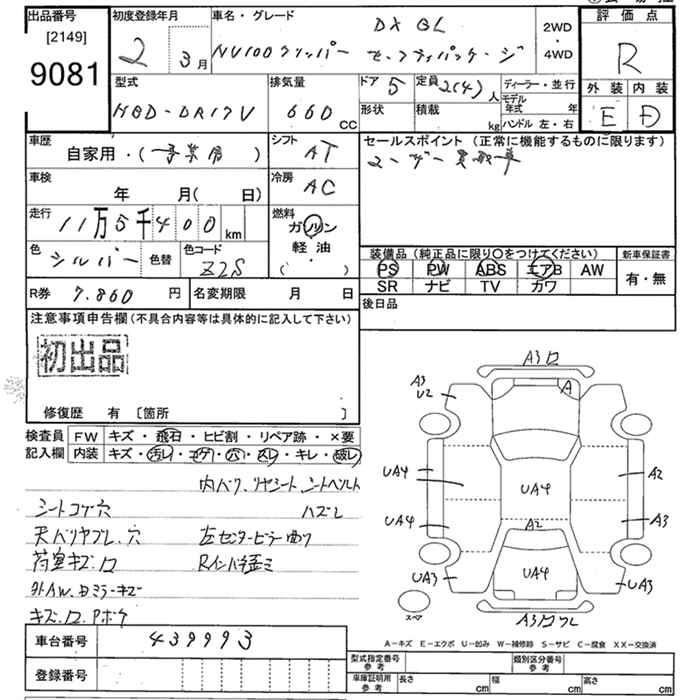 出品番号 [2149] 9081
初度登録年月 2 3月
車名・グレード DX GL
NV100クリッパー セーフティパッケージ
2WD・4WD
評価点 R
外装 内装
E D
型式 HBD-DR17V
排気量 660 CC
ドア 5
定員 2(4)人
形状
積載 kg
ディーラー・並行
モデル年式 年
ハンドル 左・右
車歴 自家用・( 事業用 )
シフト AT
セールスポイント (正常に機能するものに限ります)
ユーザー買取車
車検 年 月(日)
冷房 AC
走行 11万5千400 km
燃料 ガソリン 軽油 ・( )
色 シルバー
色替
色コード Z2S
装備品 (純正品に限り○をつけてください)
PS PW ABS エアB AW
SR ナビ TV カワ
新車保証書 有・無
R券 7.860 円
名変期限 月 日
後日品
注意事項申告欄 (不具合内容等は具体的に記入して下さい)
初出品
修復歴 有 〔箇所 〕
検査員記入欄
FW キズ・飛石・ヒビ割・リペア跡・×要
内装 キズ・汚レ・コゲ・穴・スレ・キレ・破レ
内バリ、リヤシート、シートベルト
ハズレ
シートコゲ穴
天バリヤブレ、穴
左センターピラー曲り
荷室キズ、凹
Rインパネ歪ミ
外AW、Bミラーキズ
キズ、凹、Pボケ
A3凹
A
A3
U2
UA4
A2
UA4
UA4
A3
A2
UA4
UA3
UA3
スペア
A3凹ワレ
車台番号 439993
登録番号
A-キズ E-エクボ U-凹み W-補修跡 S-サビ C-腐食 XX-交換済
型式指定番号 参考
類別区分番号 参考
車庫証明用 参考 長さ cm 幅 cm 高さ cm